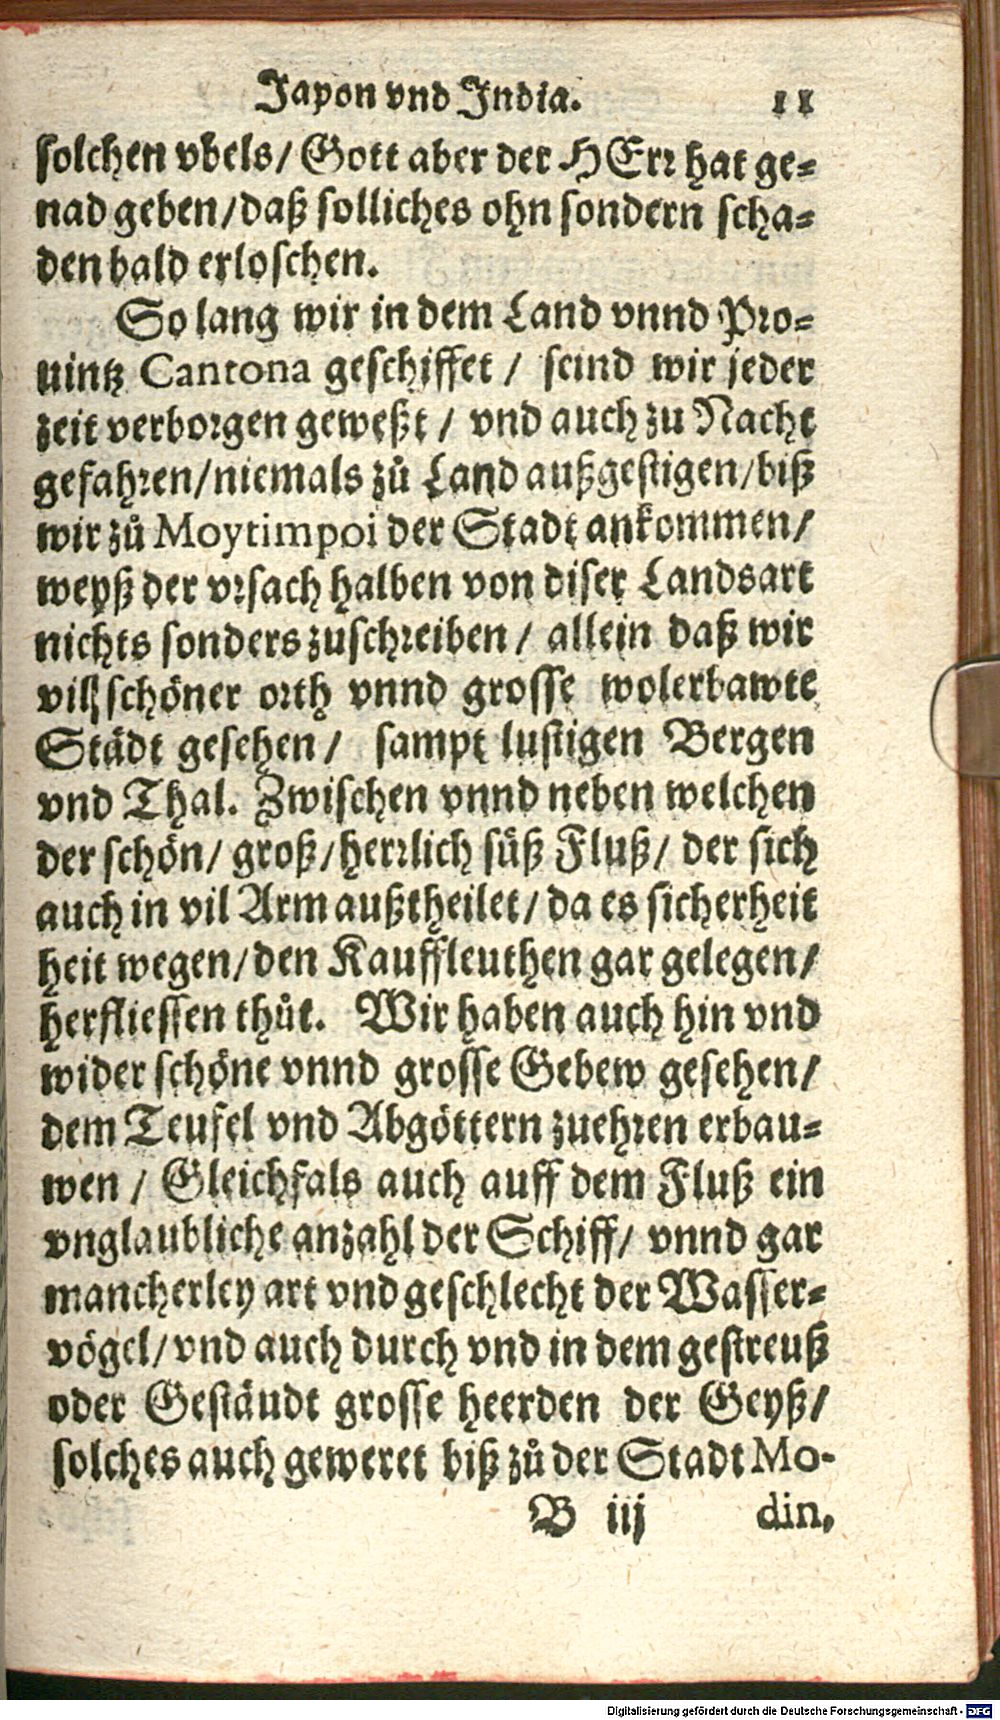 Japon vnd India. 11
solchen vbels/ Gott aber der HErr hat ge-
nad geben/ daß solliches ohn sondern scha-
den bald erloschen.
So lang wir in dem Land vnnd Pro-
uintz Cantona geschiffet / seind wir jeder
zeit verborgen geweßt / vnd auch zu Nacht
gefahren/ niemals zů Land außgestigen/ biß
wir zů Moytimpoi der Stadt ankommen/
weyß der vrsach halben von diser Landsart
nichts sonders zuschreiben / allein daß wir
vil schöner orth vnnd grosse wolerbawte
Städt gesehen / sampt lustigen Bergen
vnd Thal. Zwischen vnnd neben welchen
der schön/ groß/ herrlich süß Fluß/ der sich
auch in vil Arm außtheilet/ da es sicherheit
heit wegen/ den Kauffleuthen gar gelegen/
herfliessen thůt. Wir haben auch hin vnd
wider schöne vnnd grosse Gebew gesehen/
dem Teufel vnd Abgöttern zuehren erbau-
wen / Gleichfals auch auff dem Fluß ein
vnglaubliche anzahl der Schiff/ vnnd gar
mancherley art vnd geschlecht der Wasser-
vögel/ vnd auch durch vnd in dem gestreuß
oder Geständt grosse heerden der Geyß/
solches auch geweret biß zů der Stadt Mo-
B iij din,
Digitalisierung gefördert durch die Deutsche Forschungsgemeinschaft - DFG